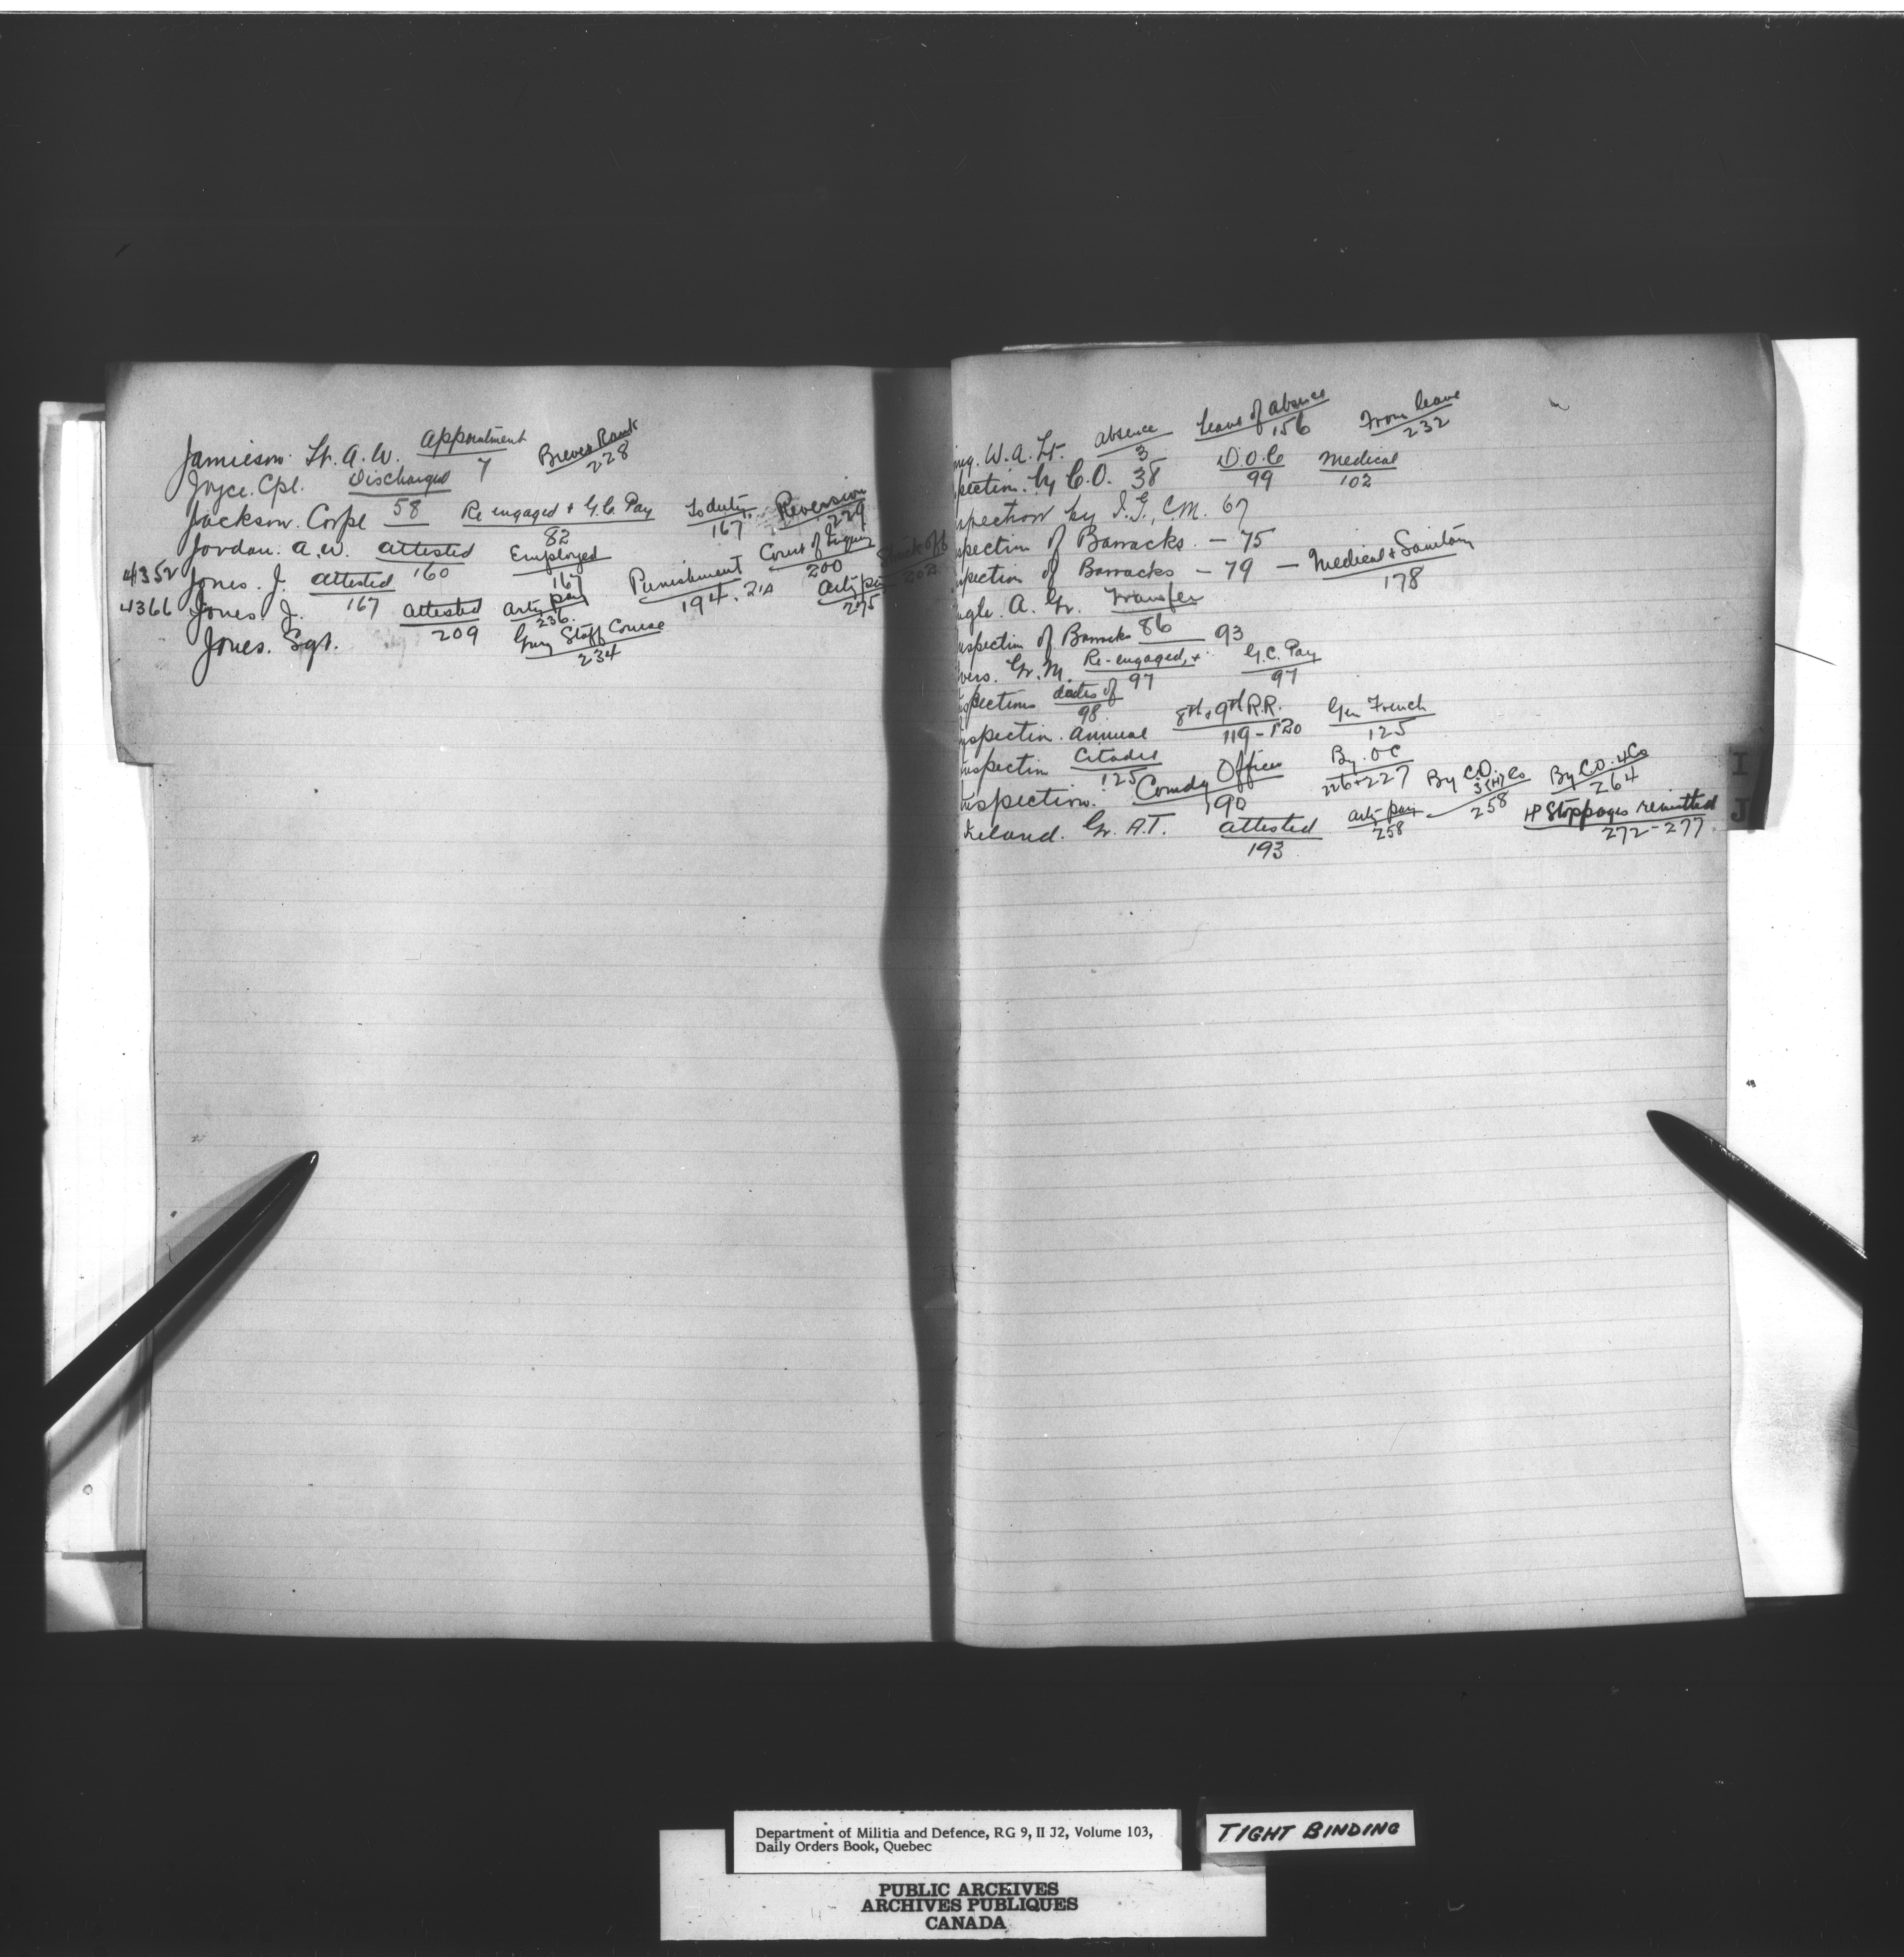 Jamieson. Lt. A. W. Appointment 7 Brevet Rank 228
Joyce. Cpl. Discharged 58
Jackson. Corpl Re engaged + G.C. Pay 82 To duty 167 Reversion 229
Jordan. A. W. attested 160 Employed 167 Punishment 194. 210 Court of Inquiry 200 Struck off 202
4352 Jones. J. attested 167 arty pay 236 arty pay 275
4366 Jones J. attested 209
Jones. Sgt. Gun Staff Course 234
W. A. Lt. absence 3 Leave of absence 156 From leave 232
pection by C.O. 38 D.O.C 99 Medical 102
spection by I.G., C.M. 67
spection of Barracks. - 75
spection of Barracks - 79 - Medical + Sanitary 178
ngle. A. Gr. Transfer 86
nspection of Barracks 93
vers. Gr. M. Re-engaged, + 97 G.C. Pay 97
spections dates of 98
nspection. annual 8th + 9th R.R. 119-120 Gen French 125
nspection Citadel 125
nspection. Comdg Officer 190 By. O C 226+227 By C.O. 258 By C.O. 4 Co 264
Ireland. Gr. A.T. attested 193 arty pay 258 Stoppages remitted 272-277
I
J
Department of Militia and Defence, RG 9, II J2, Volume 103,
Daily Orders Book, Quebec
TIGHT BINDING
PUBLIC ARCHIVES
ARCHIVES PUBLIQUES
CANADA